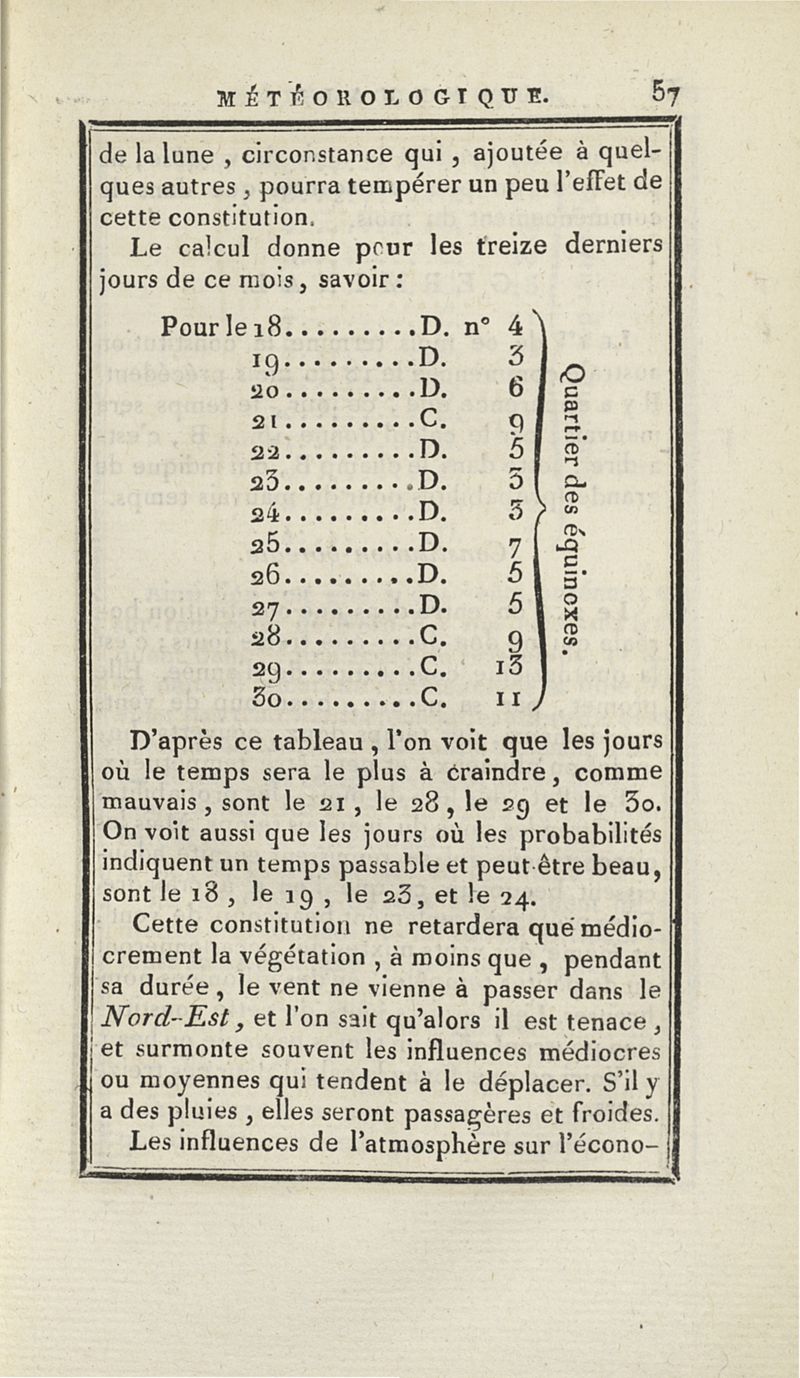 MÉTÉOROLOGIQUE. 57
de la lune , circonstance qui , ajoutée à quel-
ques autres , pourra tempérer un peu l'effet de
cette constitution.
Le calcul donne pour les treize derniers
jours de ce mois, savoir :
Pour le 18.........D. n° 4
19.........D. 3
20.........D. 6
21.........C. 9
22.........D. 5
23.........D. 3
24.........D. 3
25.........D. 7
26.........D. 5
27.........D. 5
28.........C. 9
29.........C. 13
30.........C. 11
Quartier des équinoxes.
D'après ce tableau , l'on voit que les jours
où le temps sera le plus à craindre, comme
mauvais , sont le 21 , le 28 , le 29 et le 30.
On voit aussi que les jours où les probabilités
indiquent un temps passable et peut-être beau,
sont le 18 , le 19 , le 23, et le 24.
Cette constitution ne retardera que médio-
crement la végétation , à moins que , pendant
sa durée , le vent ne vienne à passer dans le
Nord-Est , et l'on sait qu'alors il est tenace ,
et surmonte souvent les influences médiocres
ou moyennes qui tendent à le déplacer. S'il y
a des pluies , elles seront passagères et froides.
Les influences de l'atmosphère sur l'écono-